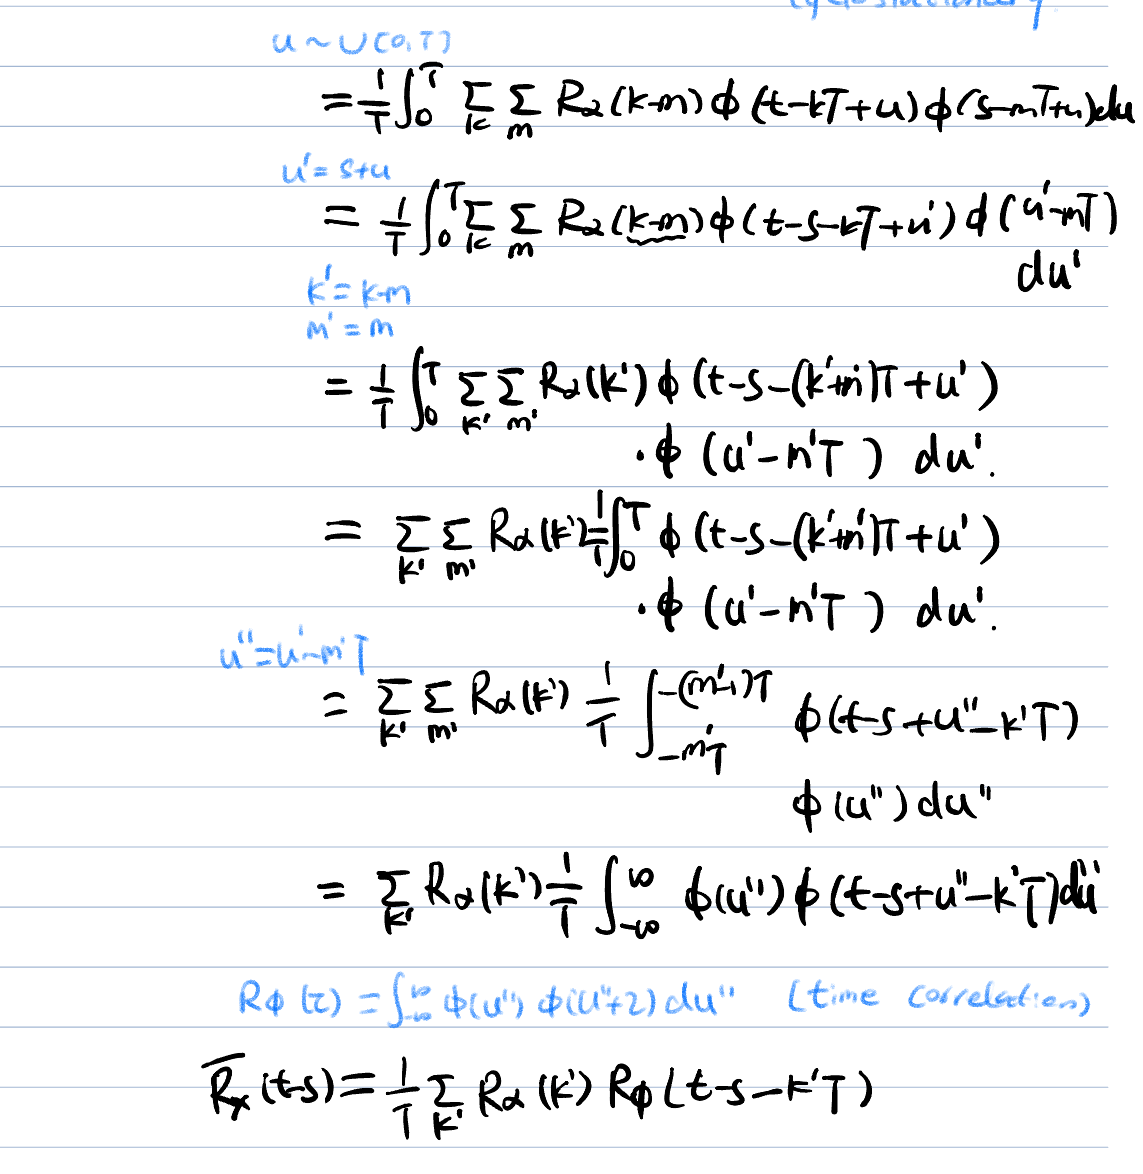 u ~ U(0,T)
= 1/T ∫_0^T Σ_k Σ_m R_α(k-m) ϕ(t-kT+u) ϕ(s-mT+u) du
u' = s+u
= 1/T ∫_0^T Σ_k Σ_m R_α(k-m) ϕ(t-s-kT+u') ϕ(u'-mT)
du'
k' = k-m
m' = m
= 1/T ∫_0^T Σ_k' Σ_m' R_α(k') ϕ(t-s-(k'+m')T+u')
· ϕ(u'-m'T) du'.
= Σ_k' Σ_m' R_α(k') 1/T ∫_0^T ϕ(t-s-(k'+m')T+u')
· ϕ(u'-m'T) du'.
u'' = u'-m'T
= Σ_k' Σ_m' R_α(k') 1/T ∫_{-m'T}^{-(m'-1)T} ϕ(t-s+u''-k'T)
ϕ(u'') du''
= Σ_k' R_α(k') 1/T ∫_{-∞}^{∞} ϕ(u'') ϕ(t-s+u''-k'T) du''
R_ϕ(τ) = ∫_{-∞}^{∞} ϕ(u'') ϕ(u''+τ) du'' (time correlation)
R̅_x(t-s) = 1/T Σ_k' R_α(k') R_ϕ(t-s-k'T)